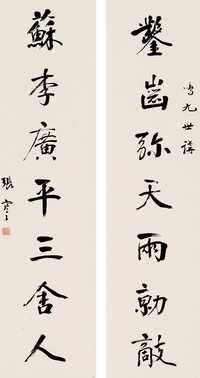 鳴九世講
鑿齒弥天兩勍敵
蘇李廣平三舍人
張謇